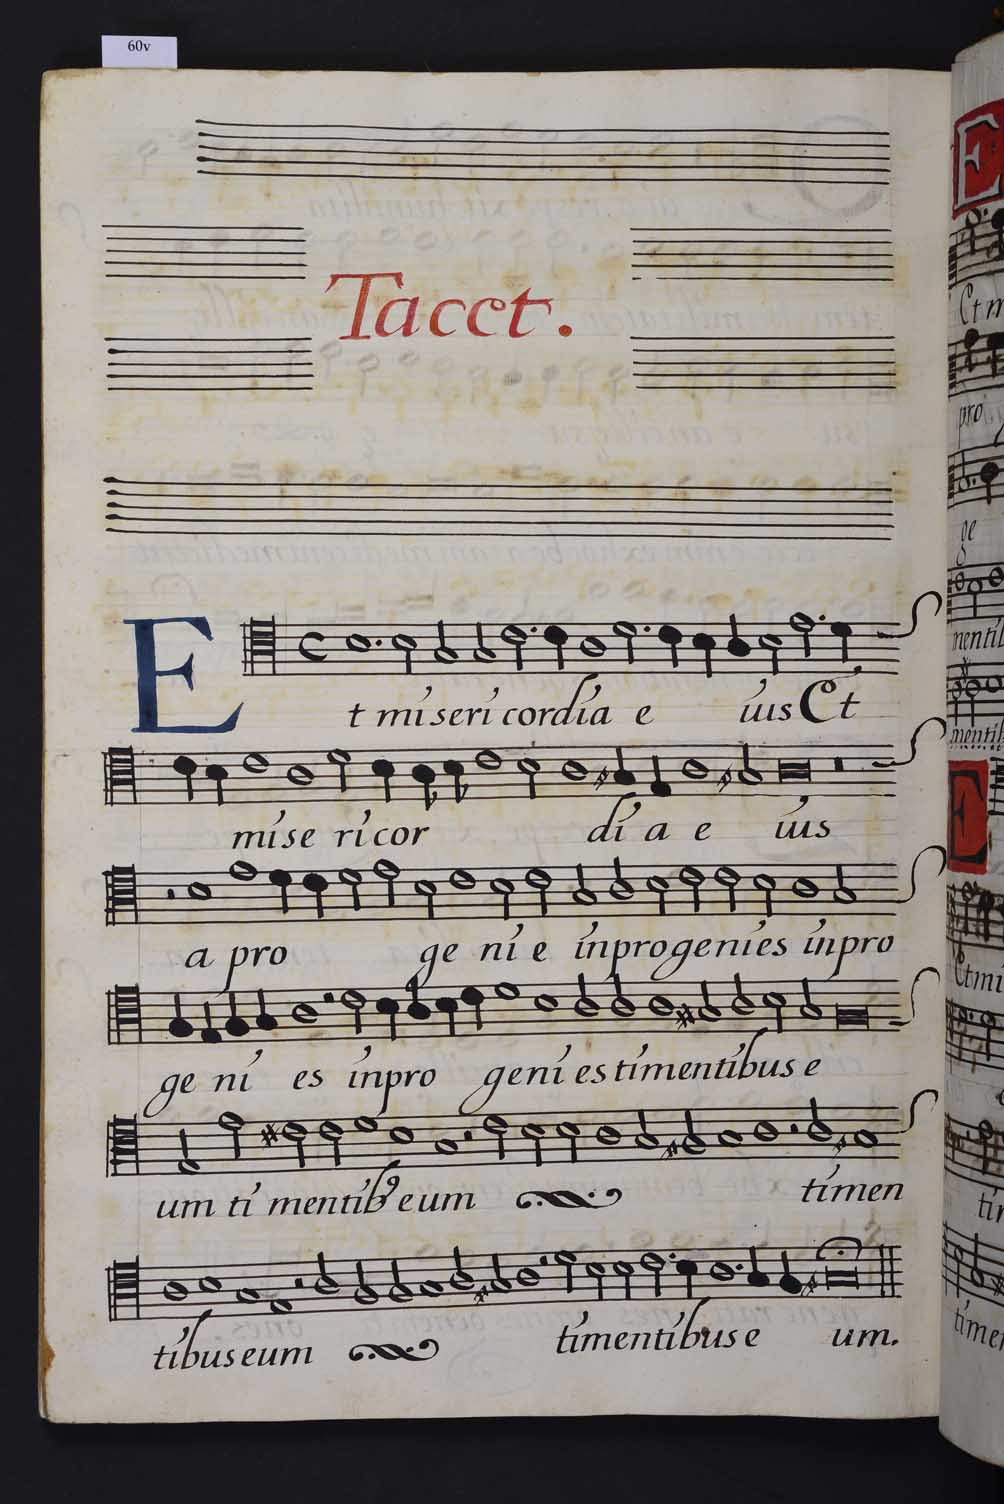 60v
Tacet.
Et misericordia e iusEt
misericor dia e ius
a pro ge ni e inprogenies inpro
ge ni es inpro geni es timentibus e
um ti mentib9 eum timen
tibus eum timentibus e um.